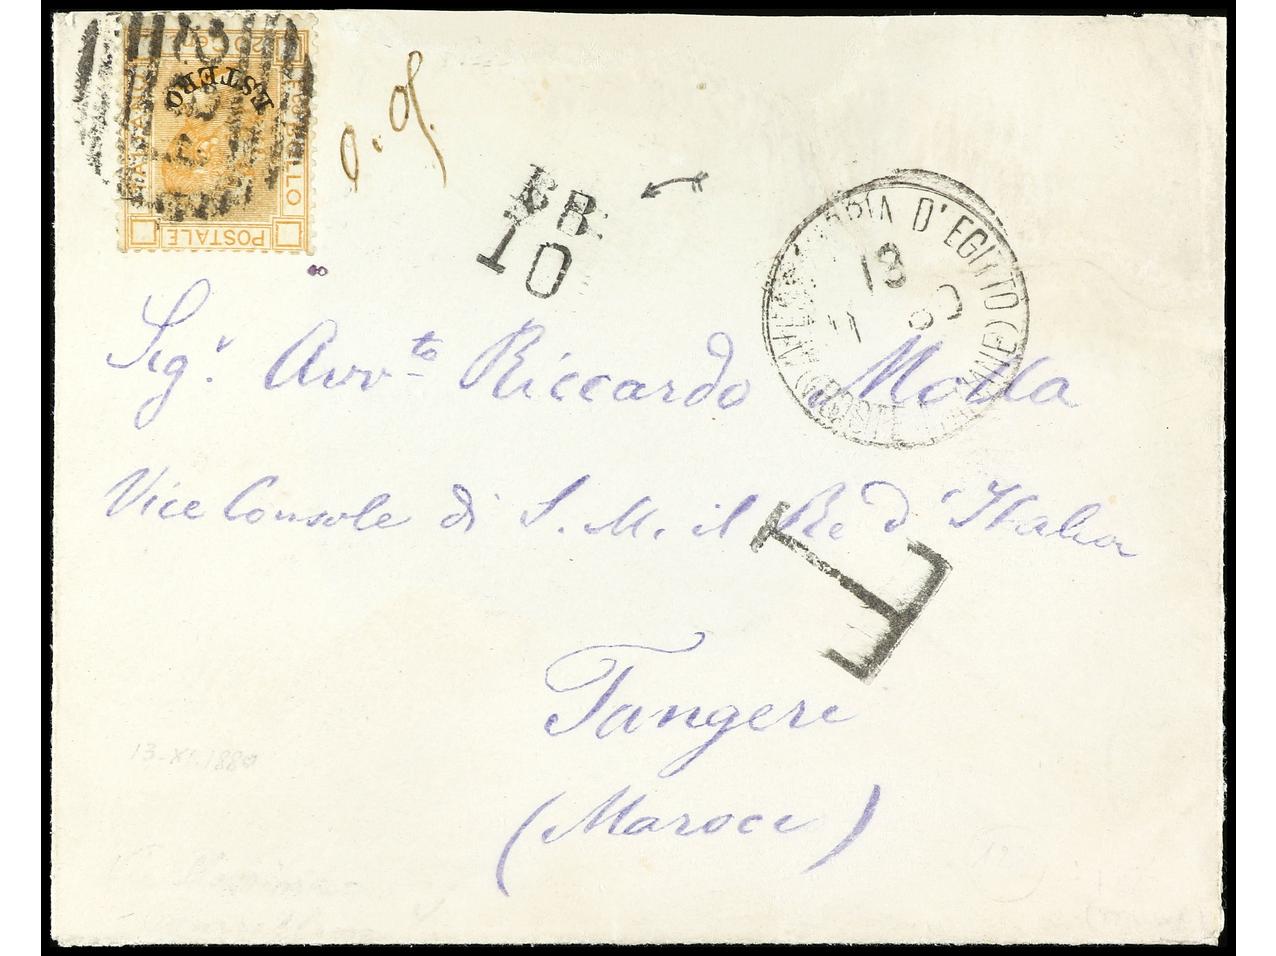 20 Cent
ESTERO
FRANCOBOLLO
POSTALE
0.05.
G.B.
10
ALESSANDRIA D'EGITTO
13
11 80
(POSTE ITALIANE)
Sig.r Avv.to Riccardo Motta
Vice Console di S. M. il Re d'Italia
T
Tangeri
(Marocco)
13-XI.1880